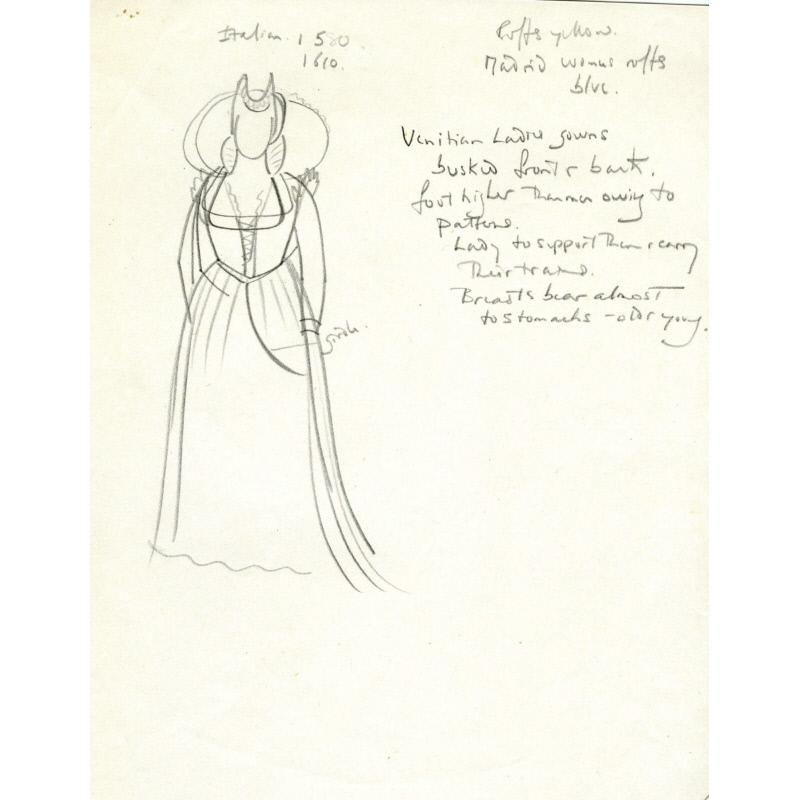 Italian 1580.
1610.
Ruffs yellow.
Madrid womens ruffs
blue.
Venitian Ladies gowns
busked front & back.
foot higher than men owing to
pattens.
Lady to support them & carry
their trains.
Breasts bear almost
to stomachs - old & young.
girdle.